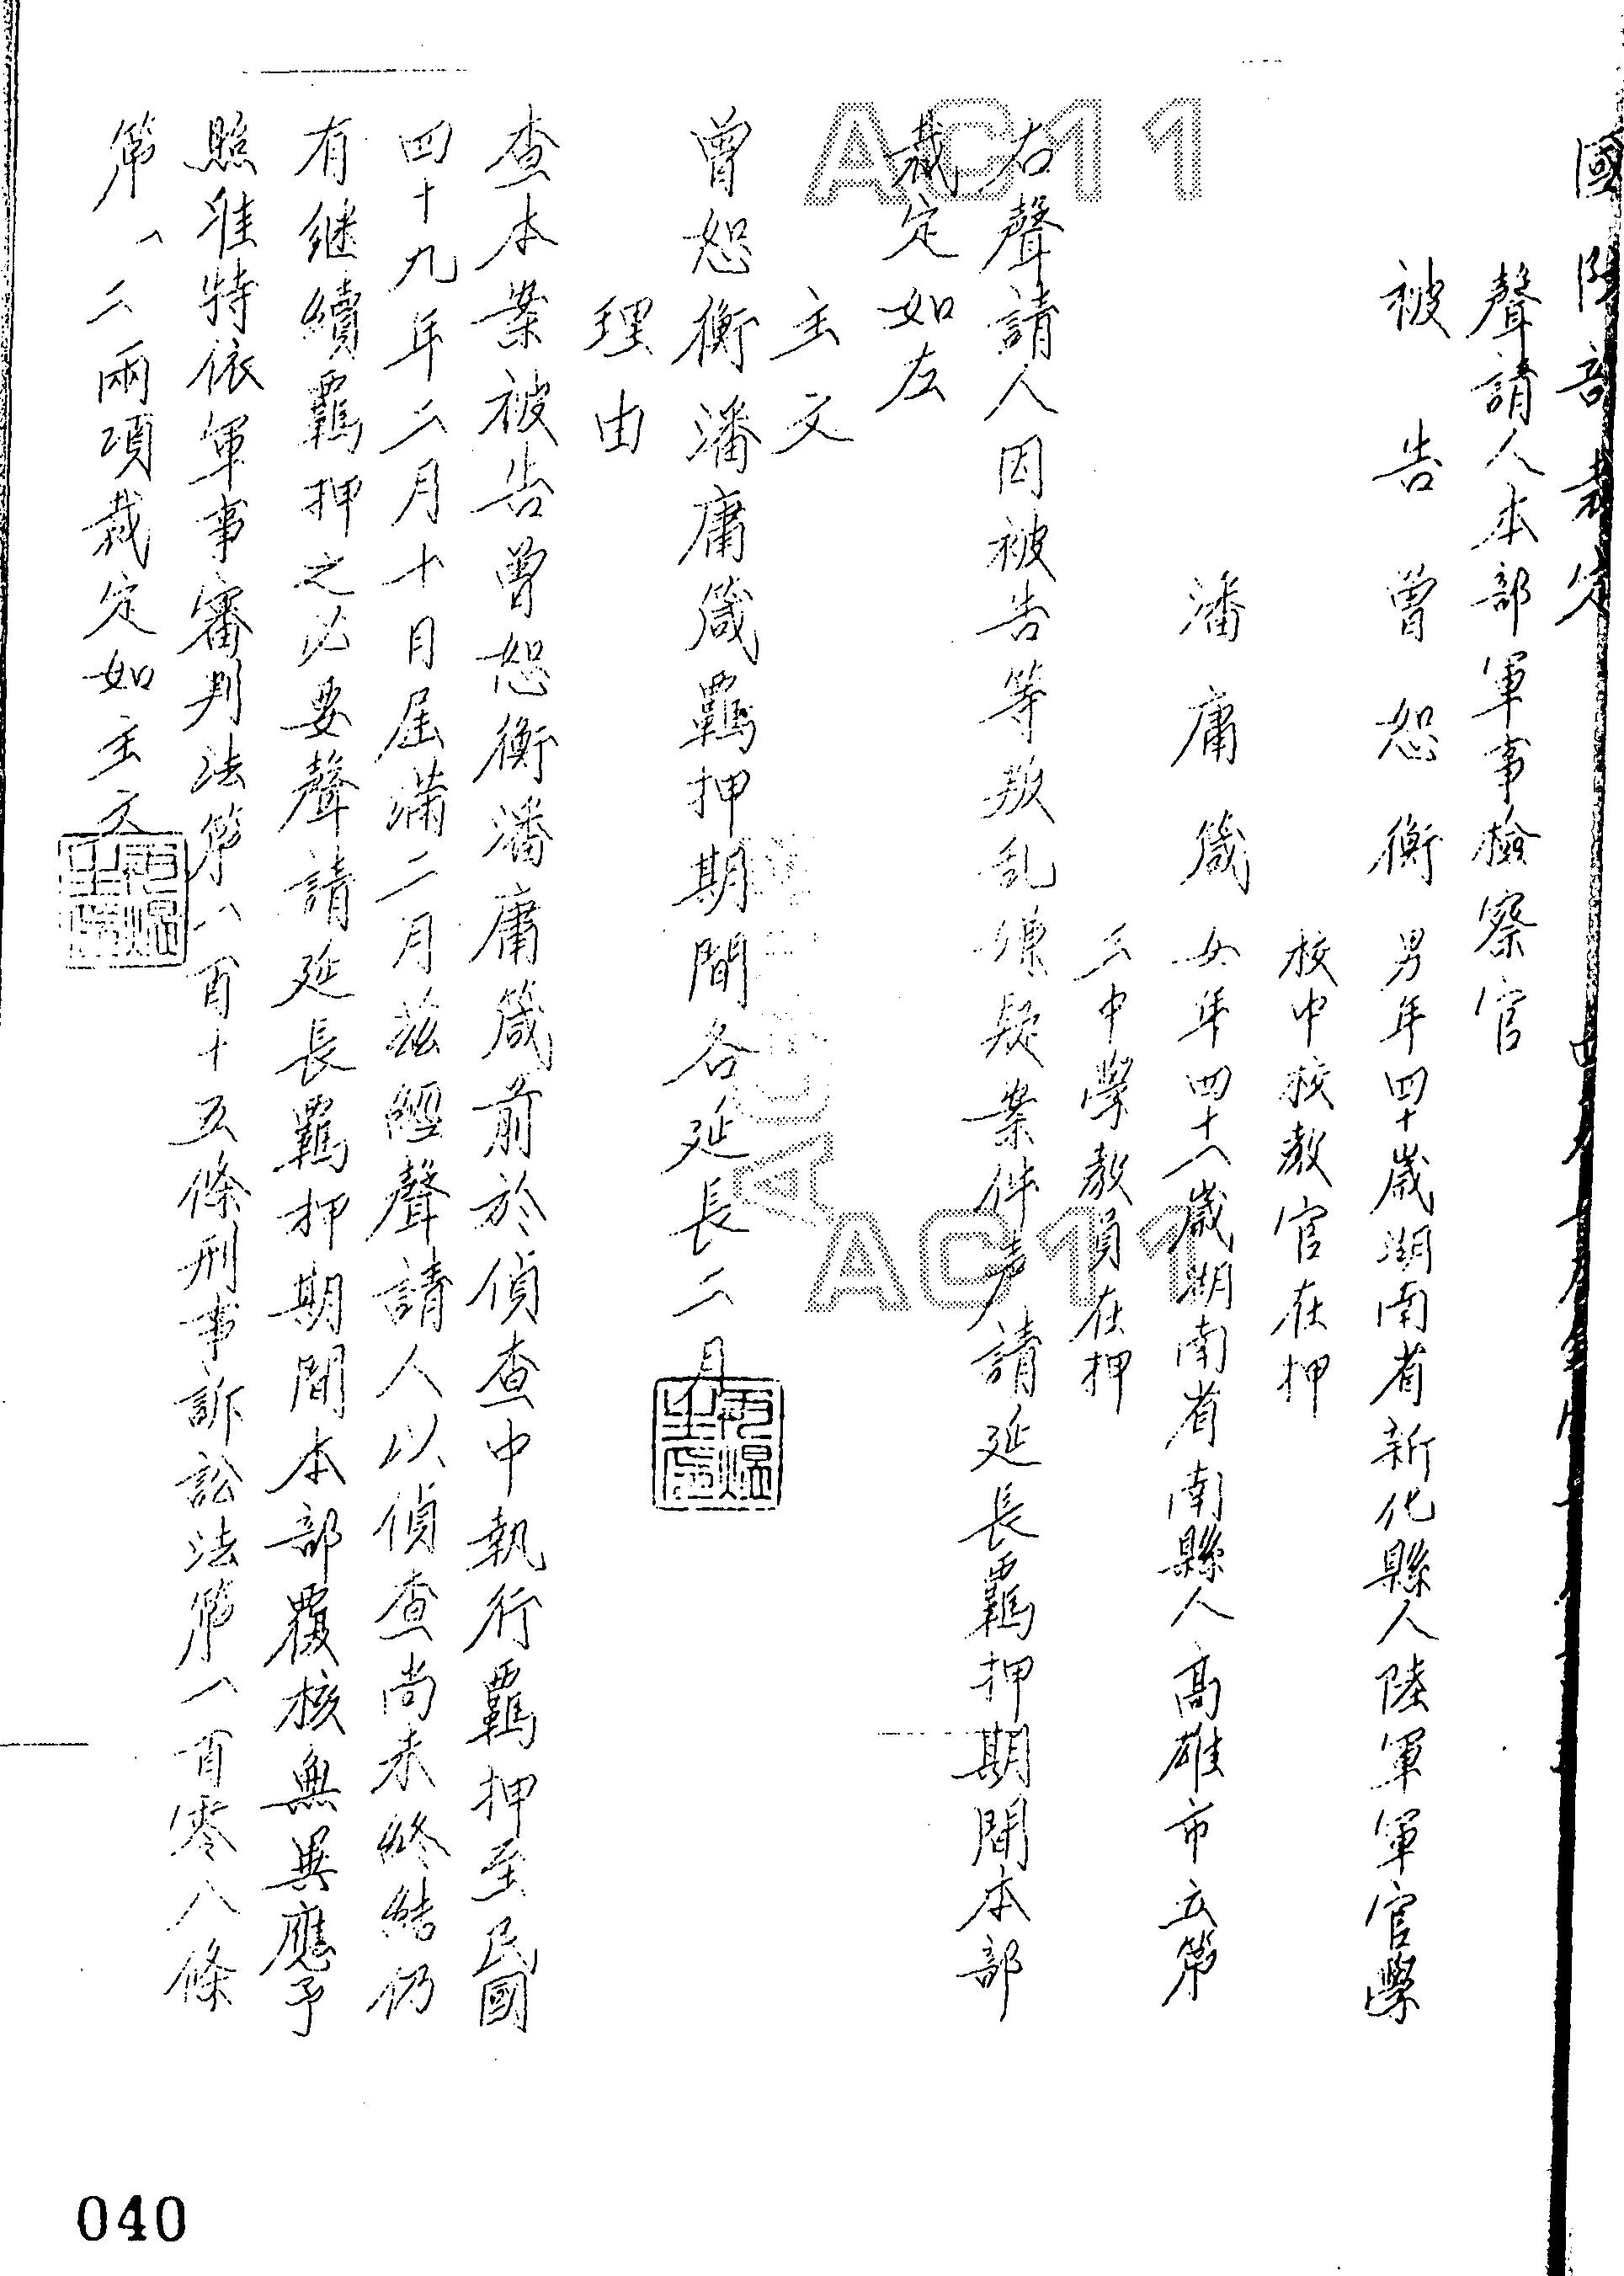 國防部裁定
聲請人本部軍事檢察官
被告曾恕衡男年四十歲湖南省新化縣人陸軍軍官學
校中校教官在押
潘庸箴女年四十八歲湖南省南縣人高雄市立第
三中學教員在押
右聲請人因被告等叛乱嫌疑案件声請延長羈押期間本部
裁定如左
主文
曾恕衡潘庸箴羈押期間各延長二月
理由
查本案被告曾恕衡潘庸箴前於偵查中執行羈押至民國
四十九年二月十日屆滿二月茲經聲請人以偵查尚未終結仍
有继續羈押之必要聲請延長羈押期間本部覆核無異應予
照准特依軍事審判法第一百十五條刑事訴訟法第一百零八條
第一、二兩項裁定如主文
AC11
AC11
040